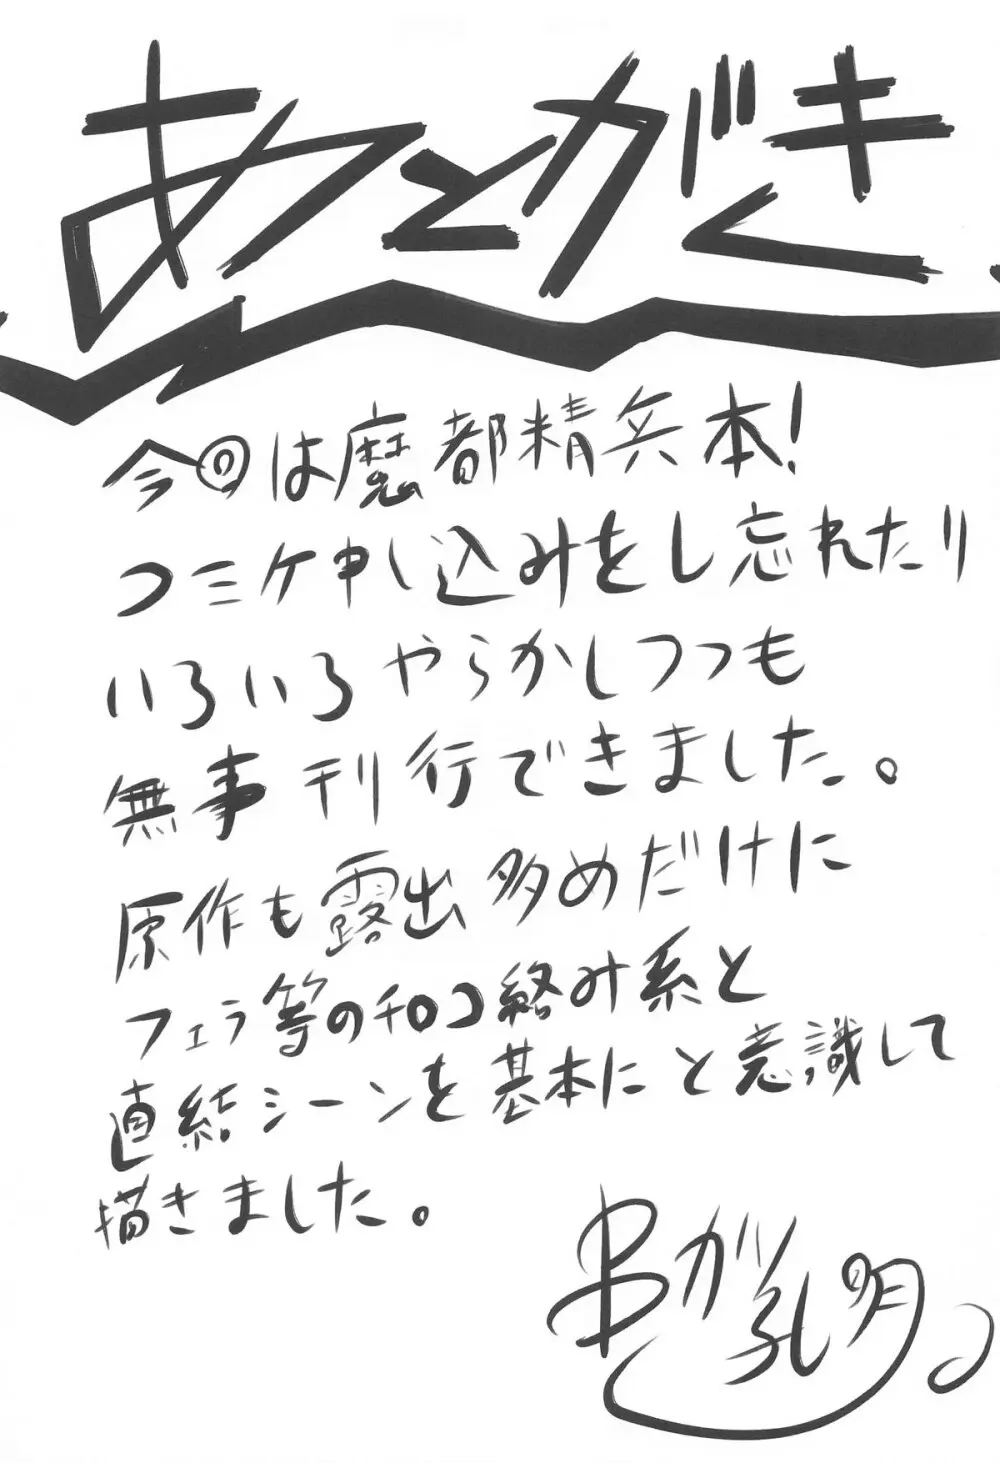 あとがき
今回は魔都精兵本!
コミケ申し込みをし忘れたり
いろいろやらかしつつも
無事刊行できました。
原作も露出多めだけに
フェラ等のチ〇コ絡み系と
直結シーンを基本にと意識して
描きました。
串が孔明